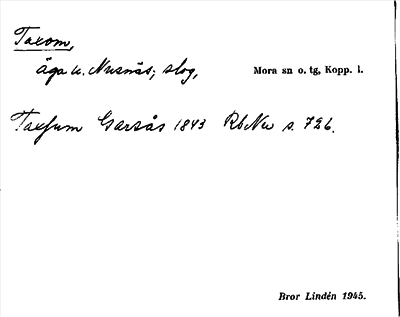 Taxom,
äga u. Nusnäs; skog, Mora sn o. tg, Kopp. l.
Taxsum Garsås 1843 RbNu s. 726.
Bror Lindén 1945.